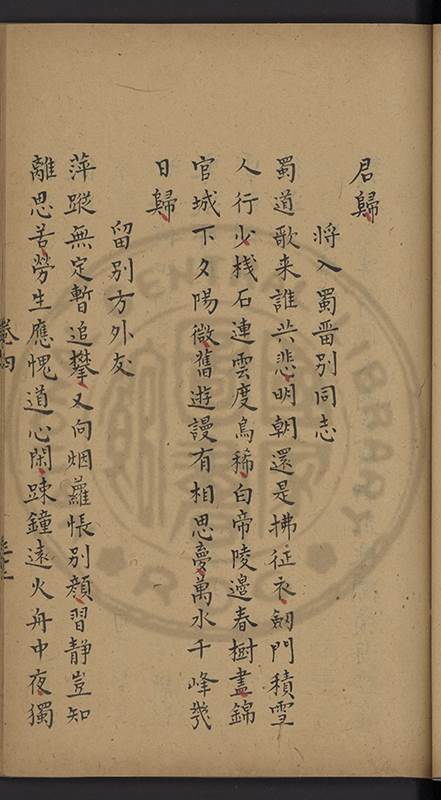 君歸
將入蜀畱別同志
蜀道歌来誰共悲明朝還是拂征衣劒門積雪
人行少棧石連雲度鳥稀白帝陵邊春樹盡錦
官城下夕陽微舊遊謾有相思夢萬水千峰幾
日歸
留别方外友
萍蹤無定暫追攀又向烟蘿悵别顔習静豈知
離思苦勞生應愧道心閑踈鐘遠火舟中夜獨